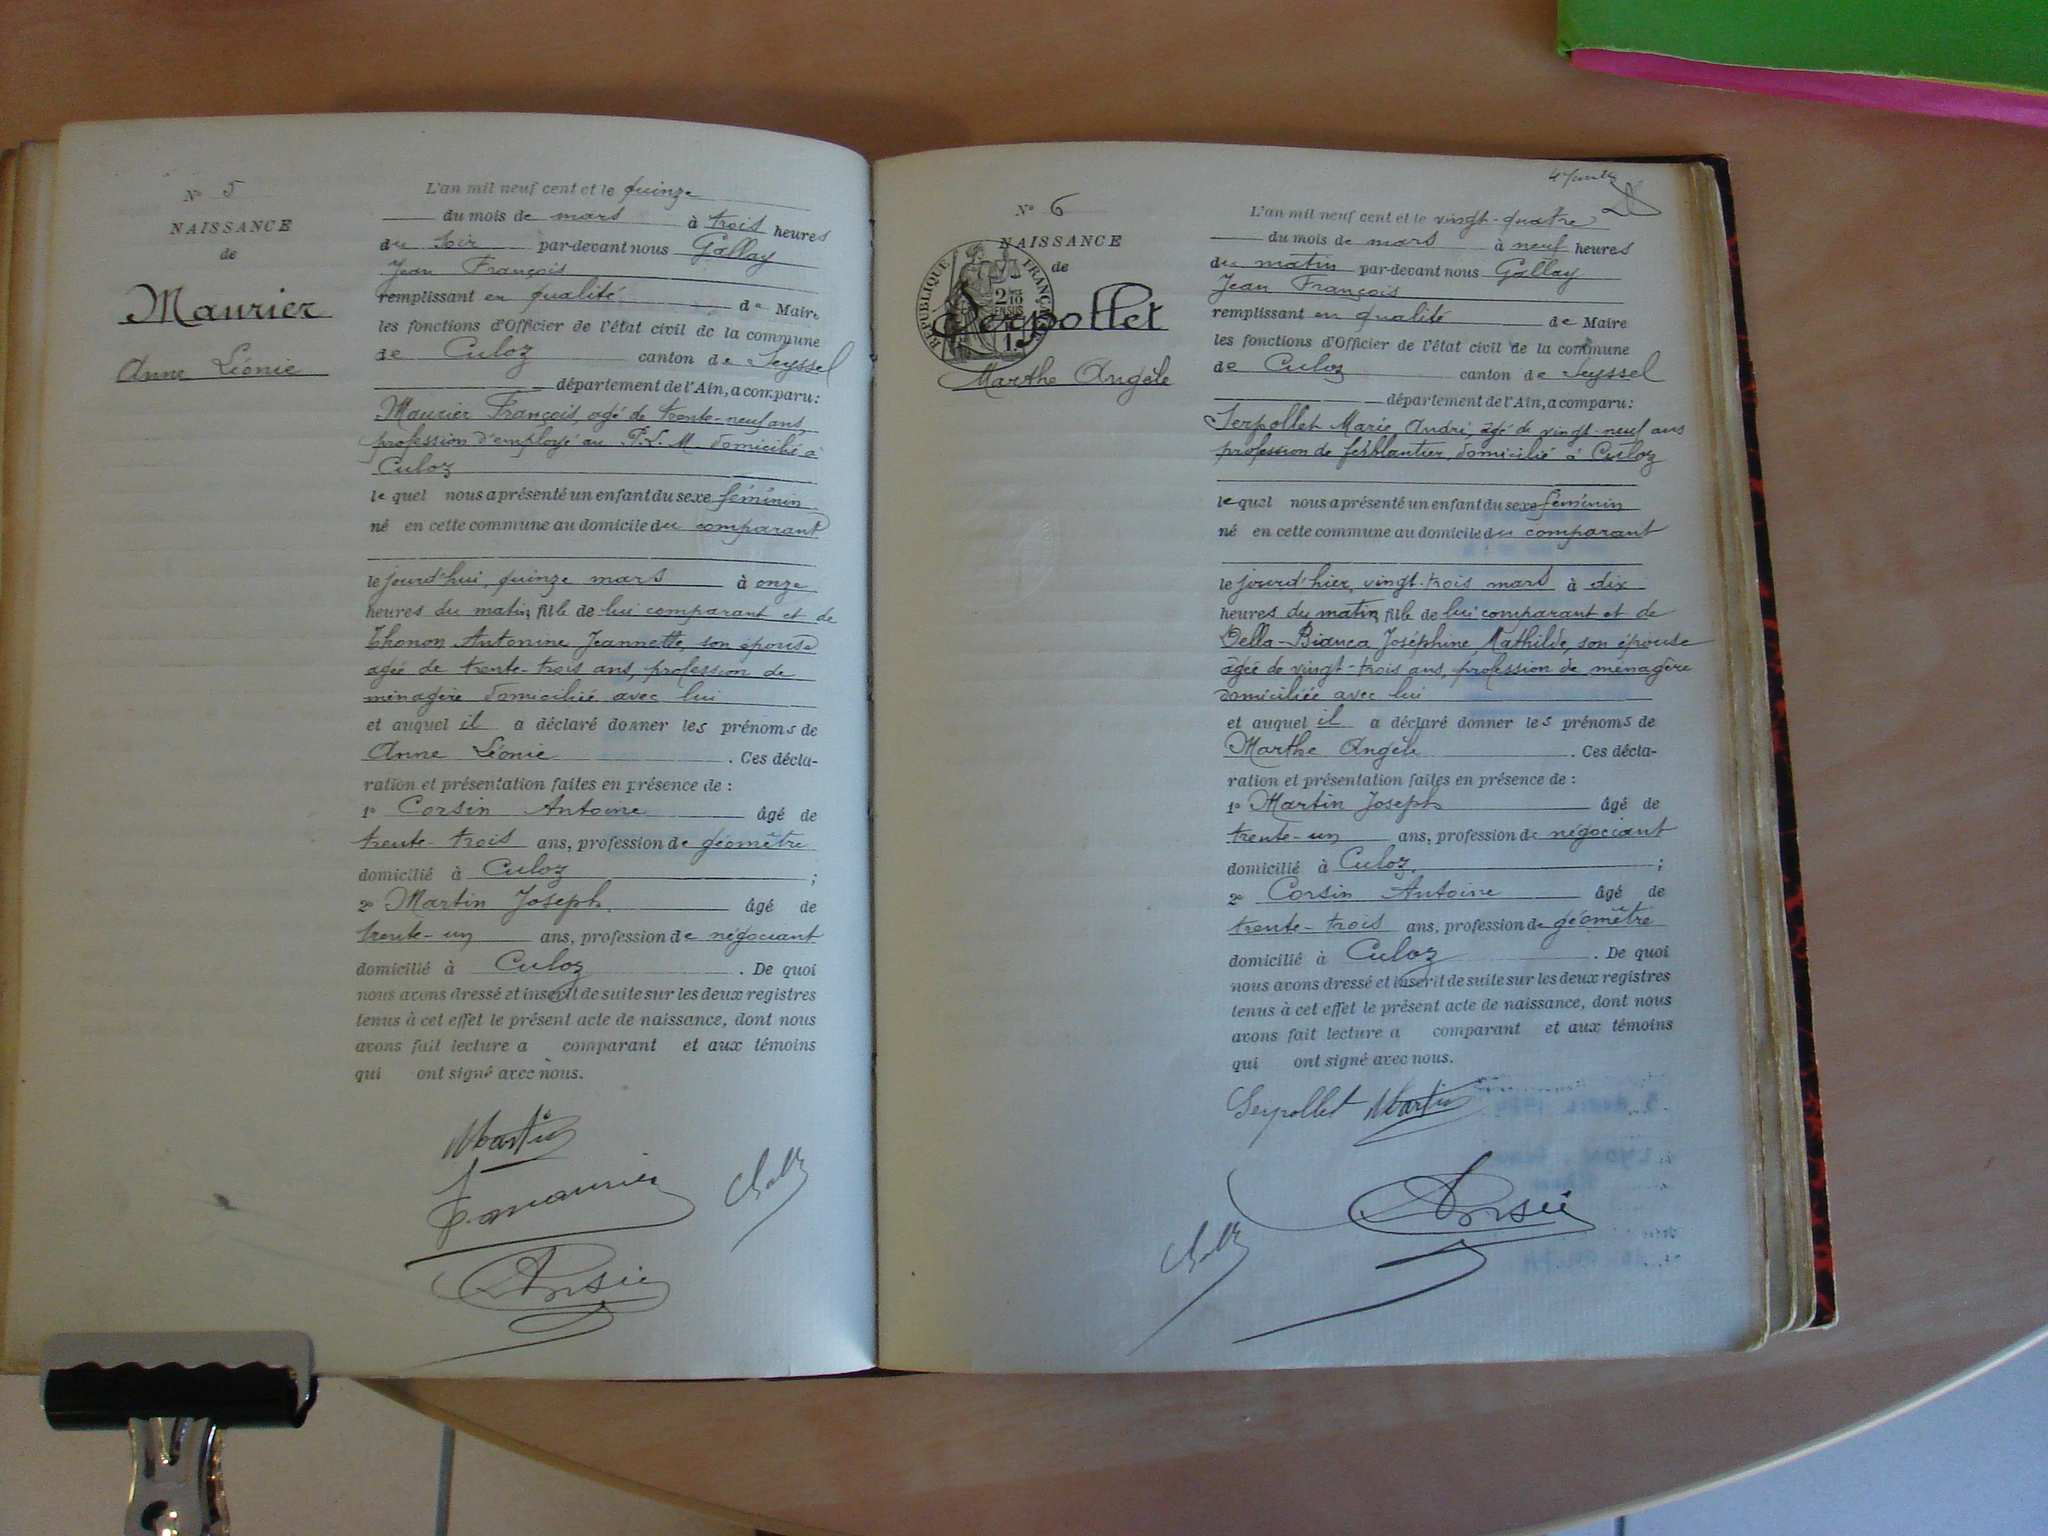 N° 5
NAISSANCE
de
Maurier
Anne Léonie
L'an mil neuf cent et le quinze
du mois de mars à trois heures
du soir par-devant nous Gallay
Jean François
remplissant en qualité de Maire
les fonctions d'Officier de l'état civil de la commune
de Culoz canton de Seyssel
département de l'Ain, a comparu:
Maurier François, agé de trente-neuf ans,
profession d'employé au P.L.M. domicilié à
Culoz
lequel nous a présenté un enfant du sexe féminin
né en cette commune au domicile du comparant
le jourd'hui, quinze mars à onze
heures du matin, fille de lui comparant et de
Thonon Antonine Jeannette, son épouse
agée de trente-trois ans, profession de
ménagère domiciliée avec lui
et auquel il a déclaré donner les prénoms de
Anne Léonie . Ces décla-
ration et présentation faites en présence de :
1° Corsin Antoine âgé de
trente-trois ans, profession de géomètre
domicilié à Culoz ;
2° Martin Joseph. âgé de
trente-un ans, profession de négociant
domicilié à Culoz . De quoi
nous avons dressé et inscrit de suite sur les deux registres
tenus à cet effet le présent acte de naissance, dont nous
avons fait lecture a comparant et aux témoins
qui ont signé avec nous.
Martin
Maurier
Corsin
N° 6
NAISSANCE
de
RÉPUBLIQUE FRANÇAISE
2/10 EN SUS
Serpollet
Marthe Angèle
L'an mil neuf cent et le vingt-quatre
du mois de mars à neuf heures
du matin par-devant nous Gallay
Jean François
remplissant en qualité de Maire
les fonctions d'Officier de l'état civil de la commune
de Culoz canton de Seyssel
département de l'Ain, a comparu:
Serpollet Marie André, âgé de vingt-neuf ans
profession de ferblantier, domicilié à Culoz
lequel nous a présenté un enfant du sexe féminin
né en cette commune au domicile du comparant
le jourd'hier, vingt-trois mars à dix
heures du matin, fille de lui comparant et de
Della-Bianca Joséphine, Mathilde, son épouse
âgée de vingt-trois ans, profession de ménagère
domiciliée avec lui
et auquel il a déclaré donner les prénoms de
Marthe Angèle . Ces décla-
ration et présentation faites en présence de :
1° Martin Joseph âgé de
trente-un ans, profession de négociant
domicilié à Culoz. ;
2° Corsin Antoine âgé de
trente-trois ans, profession de géomètre
domicilié à Culoz . De quoi
nous avons dressé et inscrit de suite sur les deux registres
tenus à cet effet le présent acte de naissance, dont nous
avons fait lecture a comparant et aux témoins
qui ont signé avec nous.
Serpollet Martin
Corsin